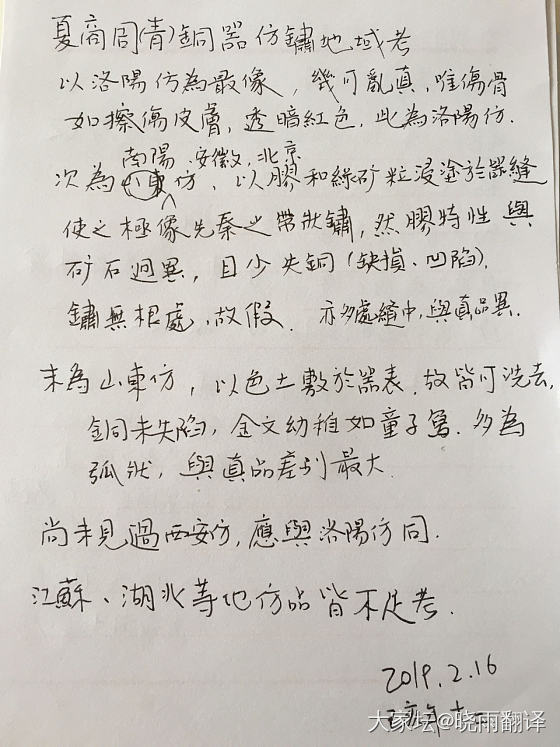 夏商周(青)銅器仿鏽地域考
以洛陽仿為最像，幾可亂真，唯傷骨
如擦傷皮膚，透暗紅色，此為洛陽仿.
南陽、安徽、北京
次為山東仿，以膠和綠矿粒浸塗於器縫
使之極像先秦之帶狀鏽，然膠特性與
矿石迥異，且少失銅(缺損、凹陷),
鏽無根處，故假. 亦多處縫中，與真品異.
末為山東仿，以色土敷於器表，故皆可洗去，
銅未失陷，金文幼稚如童子寫，多為
弧狀，與真品差別最大.
尚未見過西安仿，應與洛陽仿同.
江蘇、湖北等地仿品皆不足考.
2019.2.16
年十二
大家坛@晓雨翻译